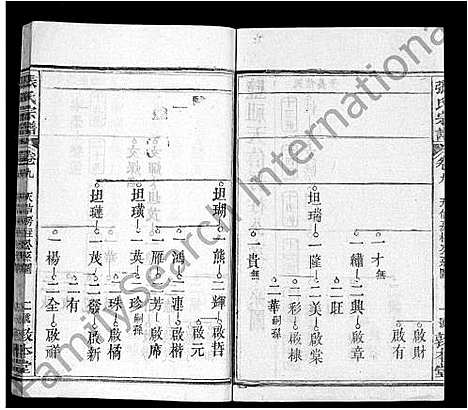 張氏宗譜
卷九
一才
啟財
啟有
一繡
二興
啟章
二旺
坦瑞
一隆
二美
啟棠
二彩
啟棣
二華
嗣孫
一貴
坦瑚
一熊
二輝
啟哲
啟元
一鴻
二連
啟楷
一雁
二芳
啟席
坦璜
一英
二珍
嗣孫
二珠
啟橘
坦璉
一茂
二發
啟新
二有
一楊
二全
啟祥
張氏宗譜
卷九
FamilySearch International